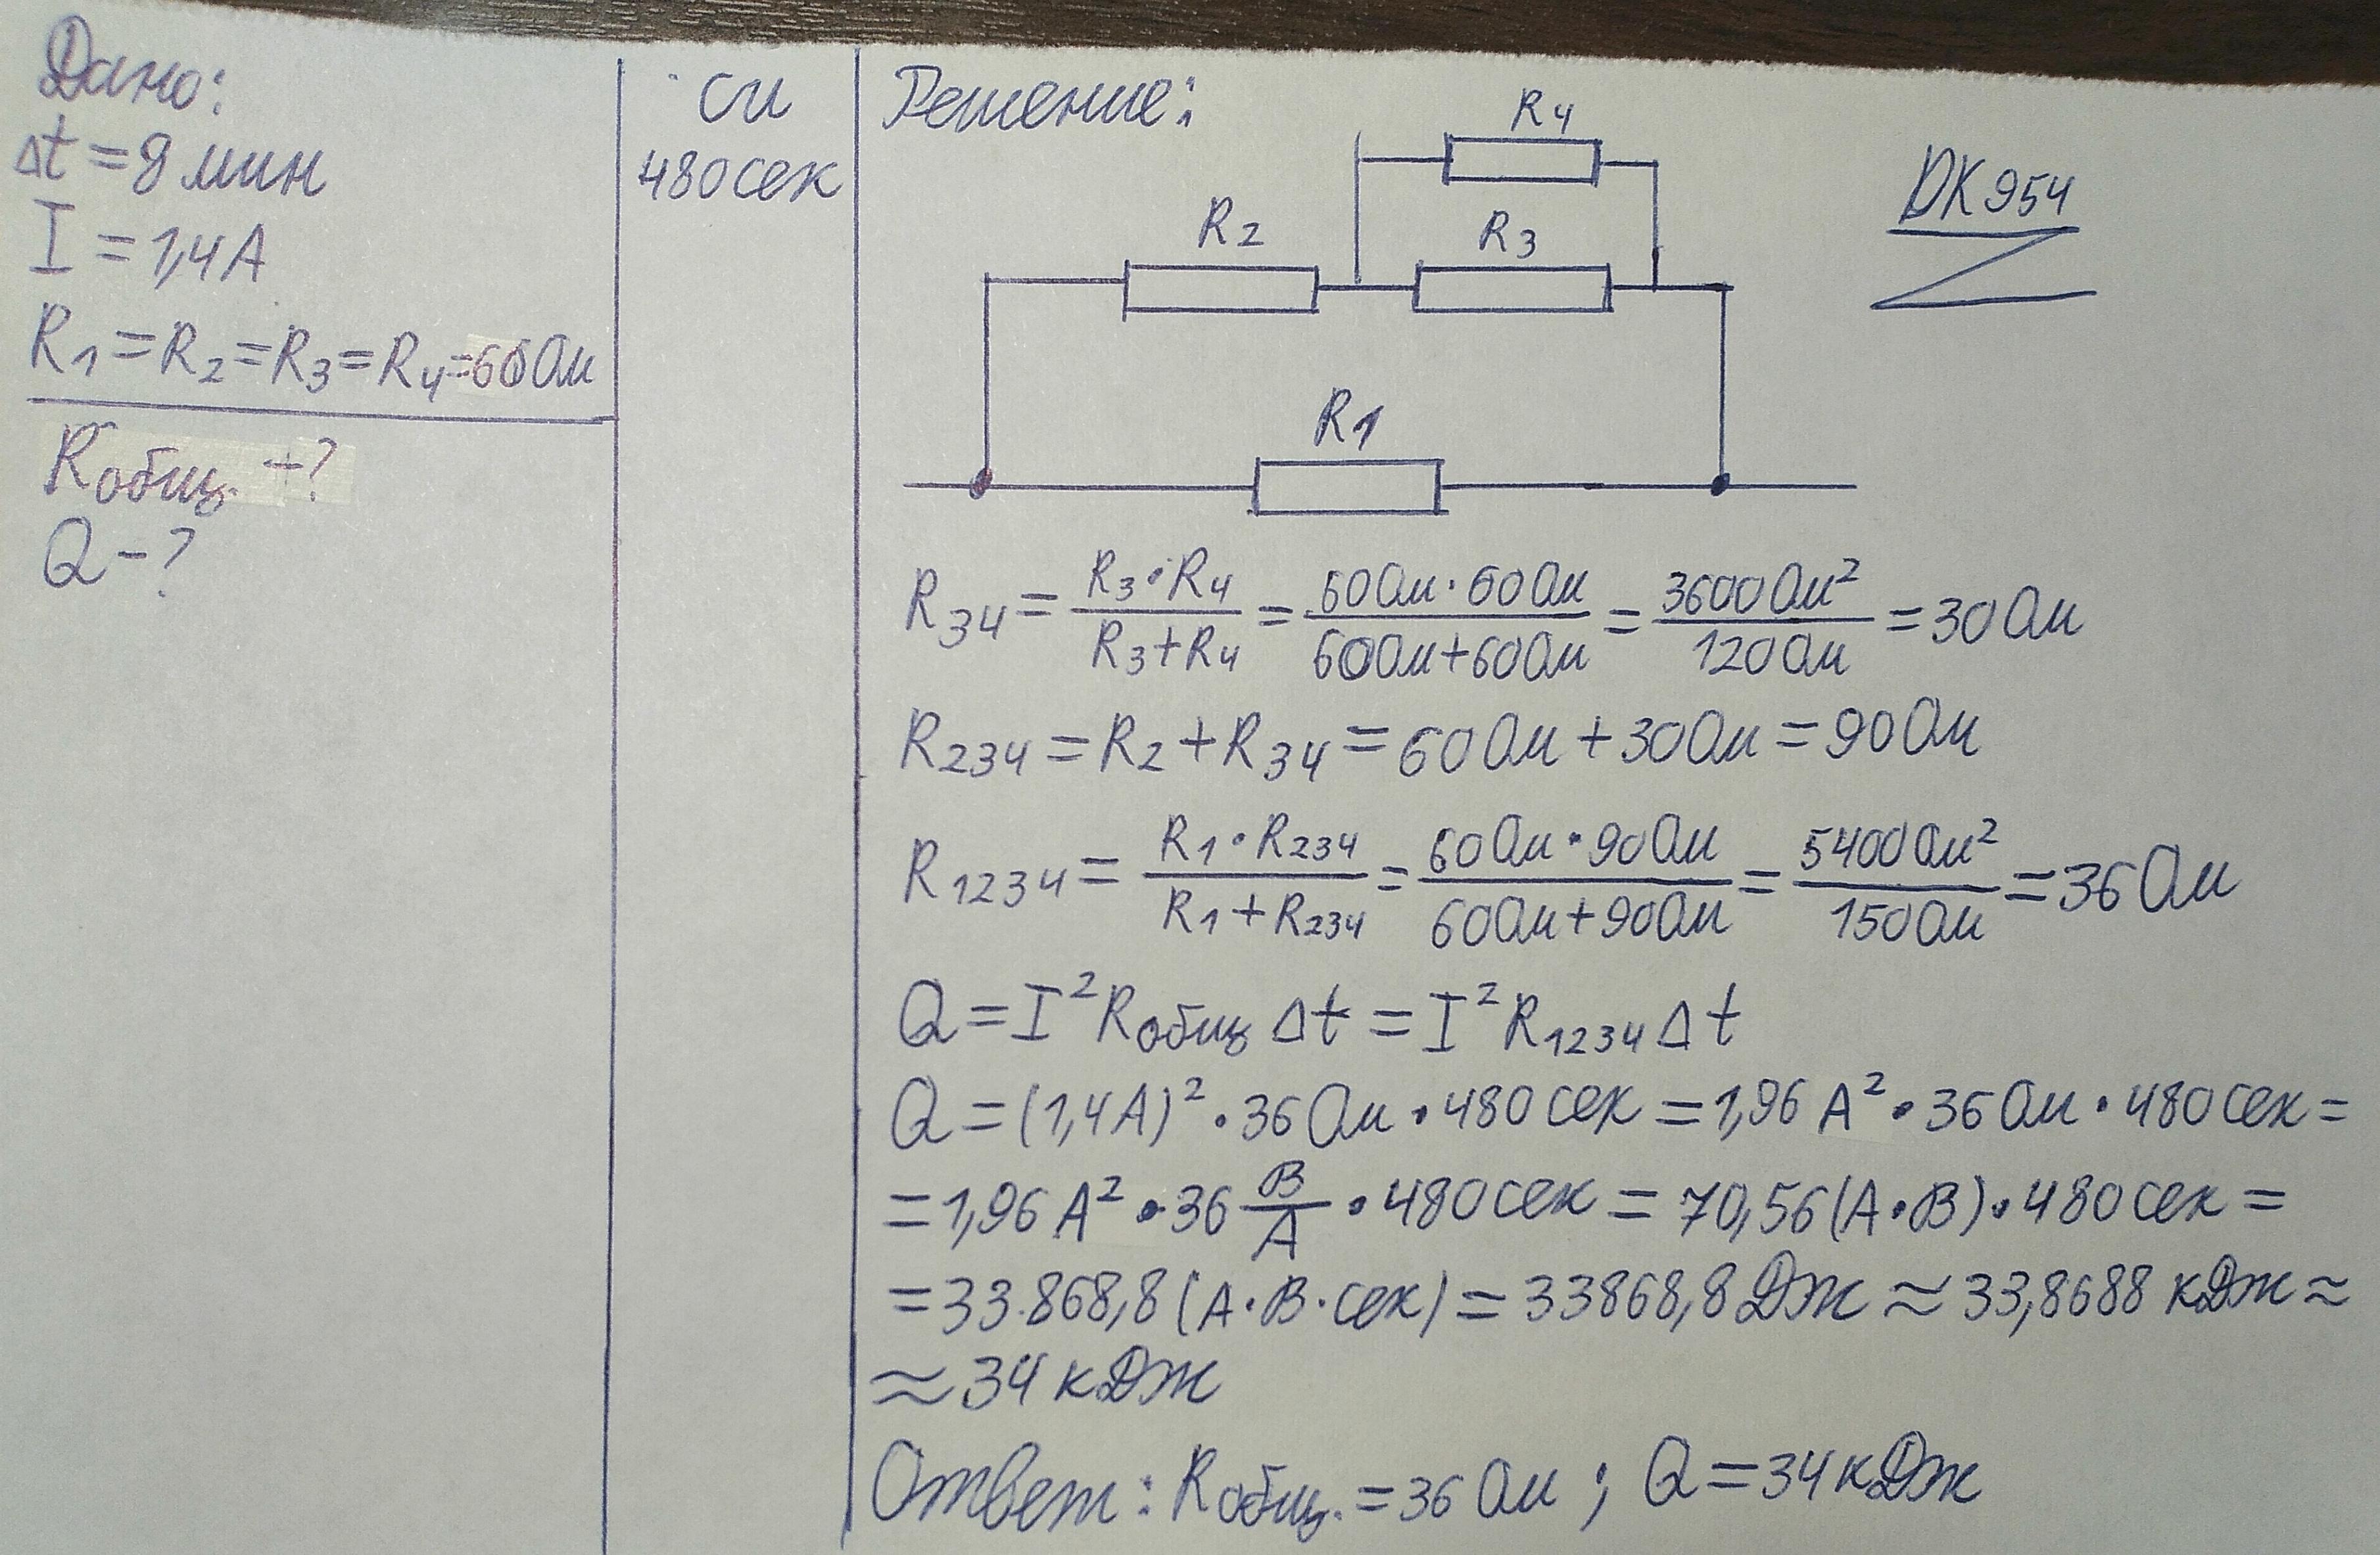 Дано:
Δt = 8 мин
I = 1,4 А
R1 = R2 = R3 = R4 = 60 Ом
Rобщ. - ?
Q - ?
СИ
480 сек
Решение:
R4
R2
R3
R1
DK954
R34 = (R3 · R4)/(R3 + R4) = (60 Ом · 60 Ом)/(60 Ом + 60 Ом) = 3600 Ом²/120 Ом = 30 Ом
R234 = R2 + R34 = 60 Ом + 30 Ом = 90 Ом
R1234 = (R1 · R234)/(R1 + R234) = (60 Ом · 90 Ом)/(60 Ом + 90 Ом) = 5400 Ом²/150 Ом = 36 Ом
Q = I² Rобщ Δt = I² R1234 Δt
Q = (1,4 А)² · 36 Ом · 480 сек = 1,96 А² · 36 Ом · 480 сек =
= 1,96 А² · 36 В/А · 480 сек = 70,56 (А · В) · 480 сек =
= 33.868,8 (А · В · сек) = 33868,8 Дж ≈ 33,8688 кДж ≈
≈ 34 кДж
Ответ: Rобщ. = 36 Ом ; Q = 34 кДж